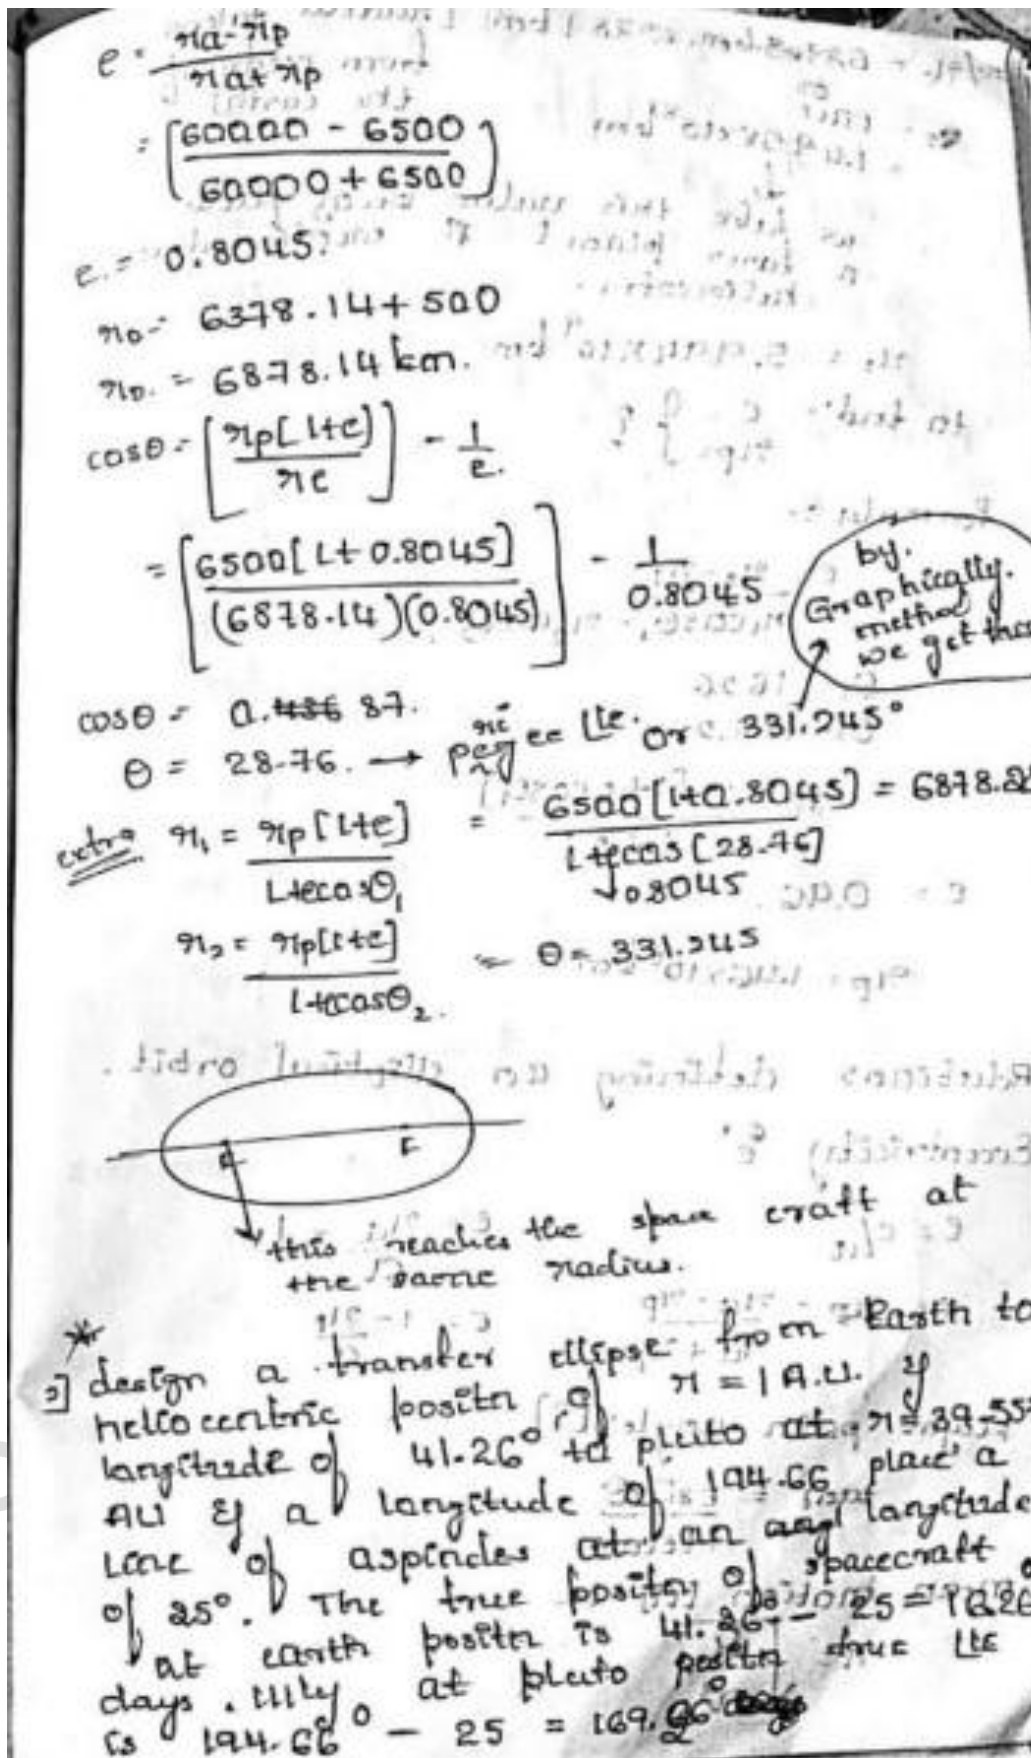 e = ra-rp / ra+rp
= [60000 - 6500 / 60000 + 6500]
e = 0.8045.
r0 = 6378.14 + 500
r0. = 6878.14 km.
cosθ = [rp[1+e] / re] - 1/e.
= [6500[1+0.8045] / (6878.14)(0.8045)] - 1/0.8045
by.
Graphically.
method
we get
cosθ = 0. 87.
θ = 28.76. → or 331.245°
extra r1 = rp[1+e] / 1+ecosθ1 = 6500[1+0.8045] / 1+ecos[28.76] = 6878.
0.8045
r2 = rp[1+e] / 1+ecosθ2. = θ = 331.245
E E
this reaches the space craft at
the same radius.
2] design a transfer ellipse from Earth to
heliocentric positn of r = 1 A.U. &
longitude of 41.26° to pluto at r = 39.55
AU & a longitude of 194.66 place a
Line of aspindes at an longitude
of 25°. The true positn of spacecraft
at earth positn is 41.26 - 25 = 16.26°
days. llly at pluto positn true
is 194.66° - 25 = 169.66°